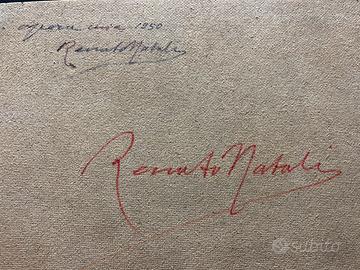 opera mia 1950
Renato Natali
Renato Natali
subito